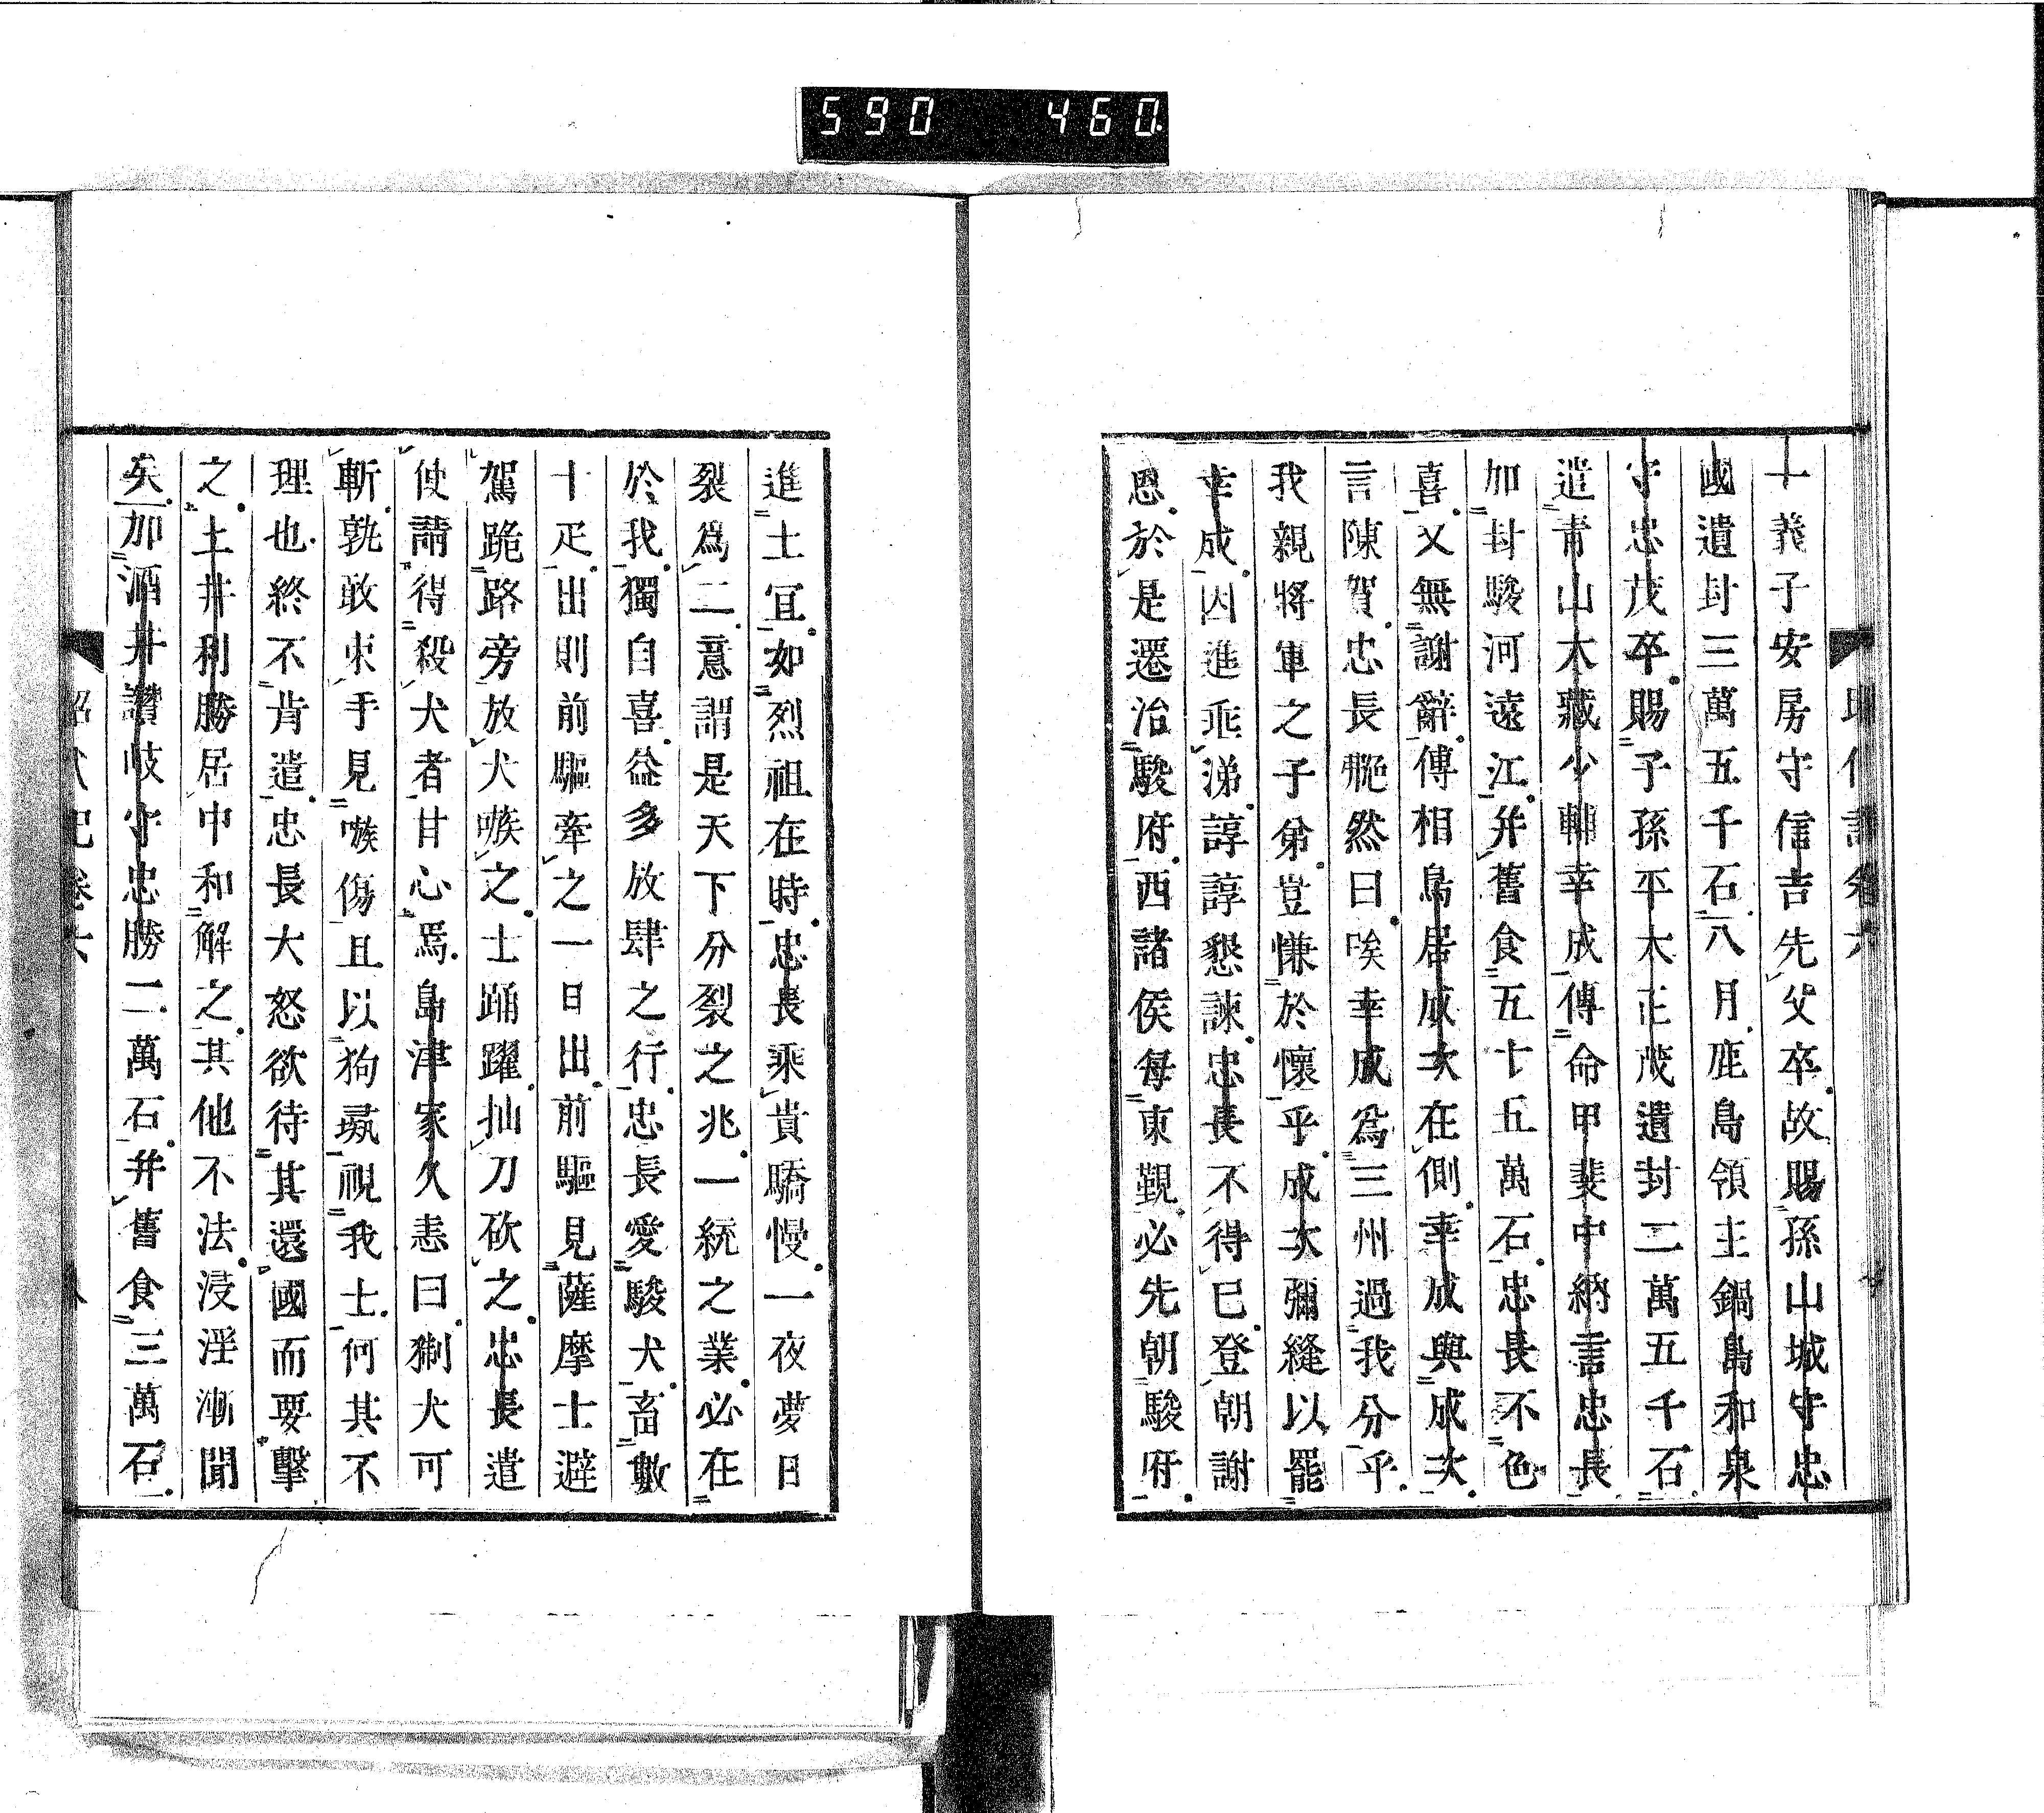 590 460
十義子安房守信吉先父卒故賜孫山城守忠
國遺封三萬五千石八月鹿島領主鍋島和泉
守忠茂卒賜子孫平太正茂遺封二萬五千石
遣青山大藏少輔幸成傳命甲斐中納言忠長
加封駿河遠江并舊食五十五萬石忠長不色
喜又無謝辭傅相鳥居成次在側幸成與成次
言陳賀忠長艴然曰唉幸成為三州過我分乎
我親將軍之子弟豈慊於懷乎成次彌縫以罷
幸成因進乖涕諄諄懇諫忠長不得已登朝謝
恩於是遷治駿府西諸侯每東覲必先朝駿府
進士冝如烈祖在時忠長乘貴驕慢一夜夢日
裂為二意謂是天下分裂之兆一統之業必在
於我獨自喜益多放肆之行忠長愛駿犬畜數
十疋出則前驅牽之一日出前驅見薩摩士避
駕跪路旁放犬嗾之士踊躍抽刀砍之忠長遣
使請得殺犬者甘心焉島津家久恚曰猘犬可
斬孰敢束手見嗾傷且以狗彘視我士何其不
理也終不肯遣忠長大怒欲待其還國而要擊
之土井利勝居中和解之其他不法浸淫漸聞
矣加酒井讚岐守忠勝二萬石并舊食三萬石